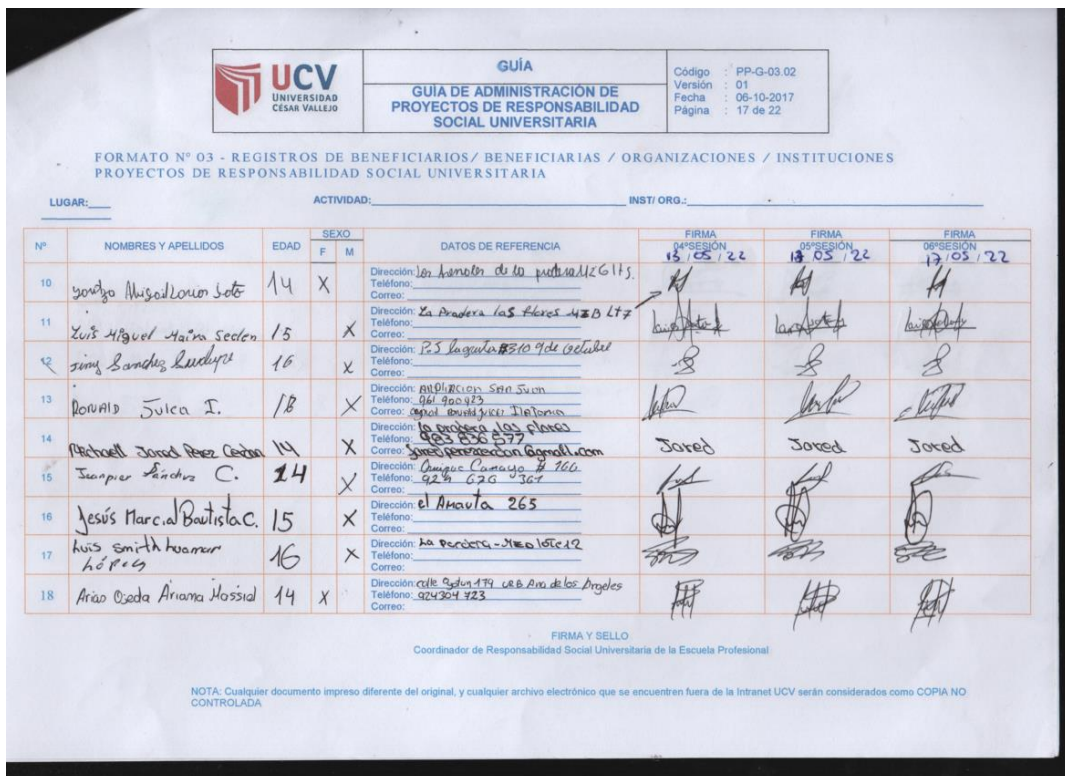 UCV
UNIVERSIDAD
CÉSAR VALLEJO
GUÍA
GUÍA DE ADMINISTRACIÓN DE
PROYECTOS DE RESPONSABILIDAD
SOCIAL UNIVERSITARIA
Código : PP-G-03.02
Versión : 01
Fecha : 06-10-2017
Página : 17 de 22
FORMATO Nº 03 - REGISTROS DE BENEFICIARIOS/ BENEFICIARIAS / ORGANIZACIONES / INSTITUCIONES
PROYECTOS DE RESPONSABILIDAD SOCIAL UNIVERSITARIA
LUGAR:____ ACTIVIDAD:____ INST/ ORG.:____
Nº NOMBRES Y APELLIDOS EDAD SEXO F M DATOS DE REFERENCIA FIRMA 04ºSESIÓN 13/05/22 FIRMA 05ºSESIÓN 05/22 FIRMA 06ºSESIÓN 17/05/22
10 14 X Dirección: de la
Teléfono:
Correo:
11 Luis Miguel 15 X Dirección: La Pradera las flores Lt7
Teléfono:
Correo:
12 Sanchez 16 X Dirección: #310 9 de Octubre
Teléfono:
Correo:
13 RONALD Julca I. 18 X Dirección: AMPLIACION SAN Juan
Teléfono: 961 900923
Correo:
14 Jared Perez 14 X Dirección: la pradera las flores
Teléfono: 983 836 577
Correo: @gmail.com
Jared Jared Jared
15 Jeanpier Sánchez C. 14 X Dirección: Enrique Camayo # 166
Teléfono: 924 626 361
Correo:
16 Jesús Marcial Bautista C. 15 X Dirección: el Amauta 265
Teléfono:
Correo:
17 Luis smith huaman 16 X Dirección: La lote 12
López
Teléfono:
Correo:
18 Arias Oseda Ariana 14 X Dirección: calle 179 URB Ana de los Angeles
Teléfono: 924304 723
Correo:
FIRMA Y SELLO
Coordinador de Responsabilidad Social Universitaria de la Escuela Profesional
NOTA: Cualquier documento impreso diferente del original, y cualquier archivo electrónico que se encuentren fuera de la Intranet UCV serán considerados como COPIA NO
CONTROLADA